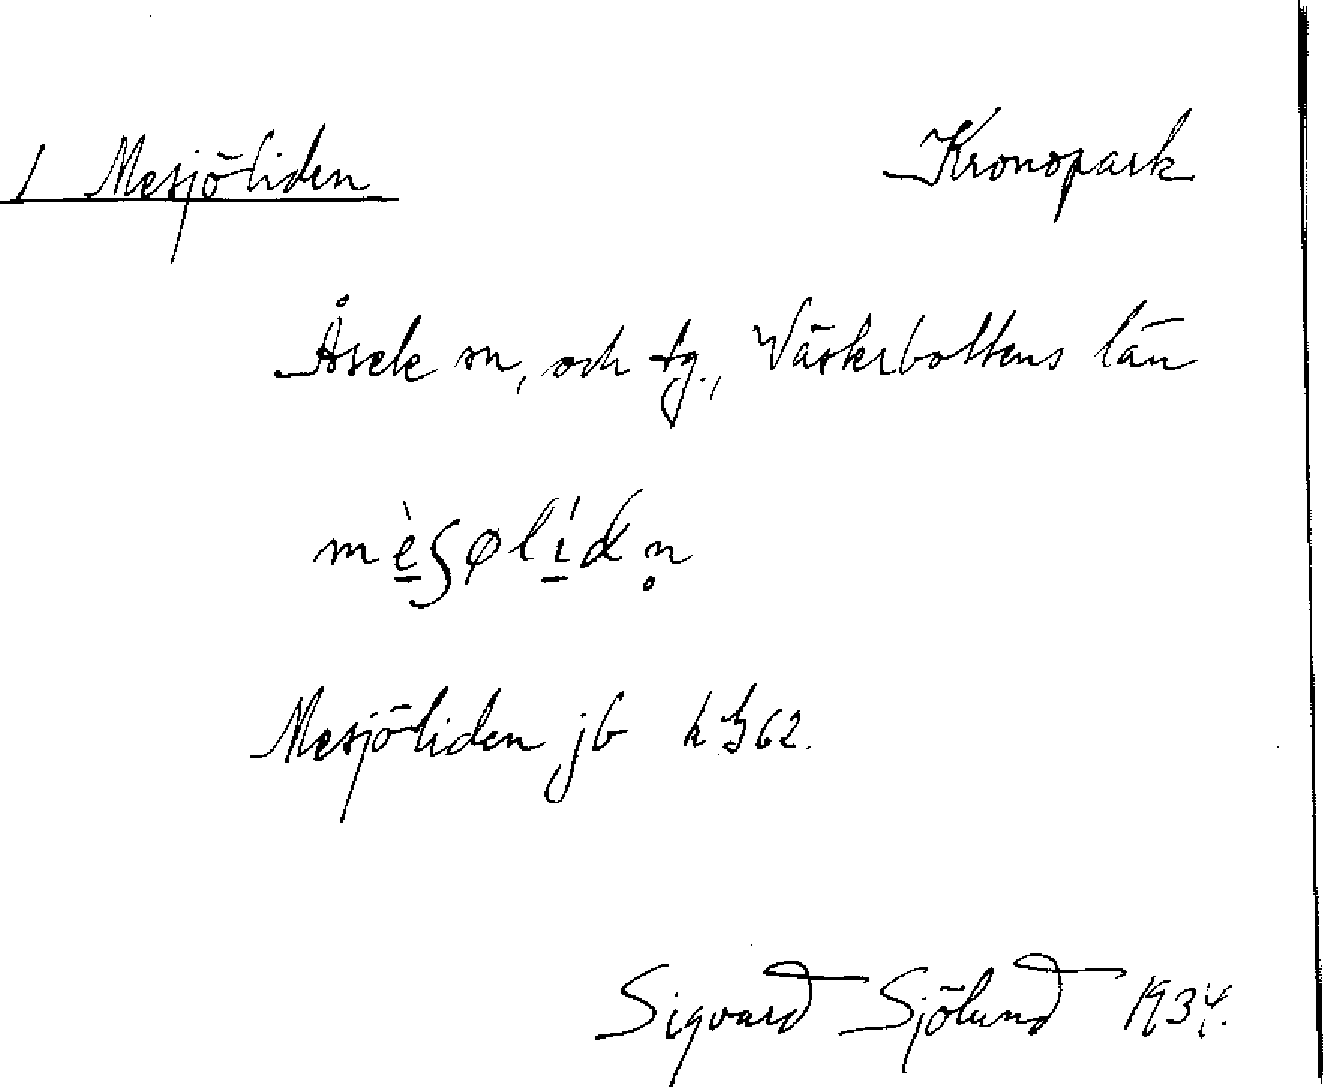 1 Mesjöliden Kronopark
Åsele sn, och tg., Västerbottens län
mèʃølídn̥
Mesjöliden jb
Sigvard Sjölund 1934.